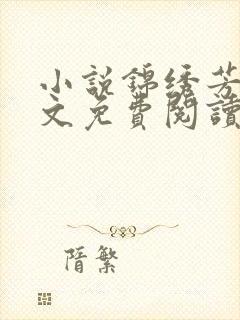 小説錦绣芳
文免費閱讀
隋繁